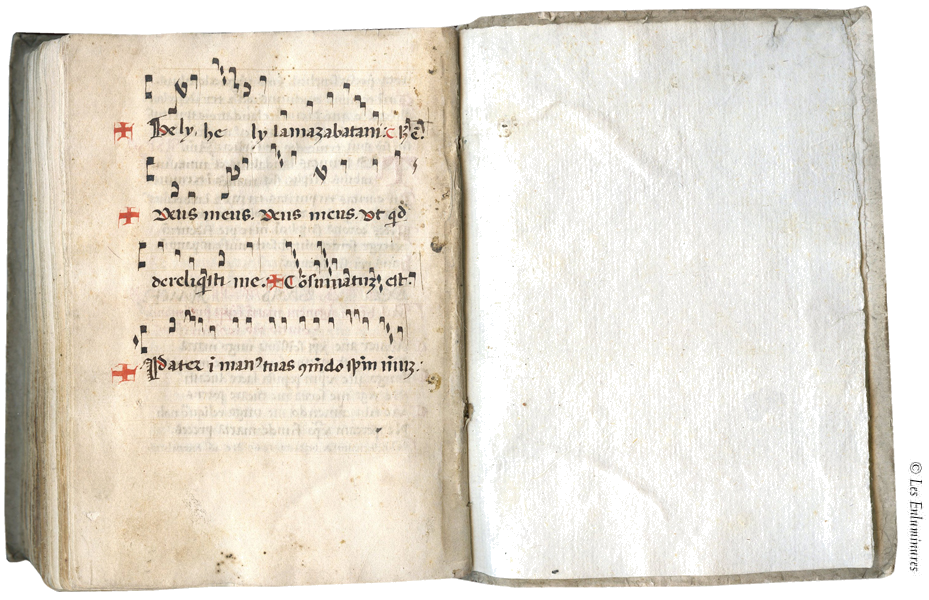 Hely, he ly lamazabatani: c
Deus meus. Deus meus. Vt qd
dereliqisti me. Cōsumatuꝫ est.
Pater ī manꝰ tuas
© Les Enluminures